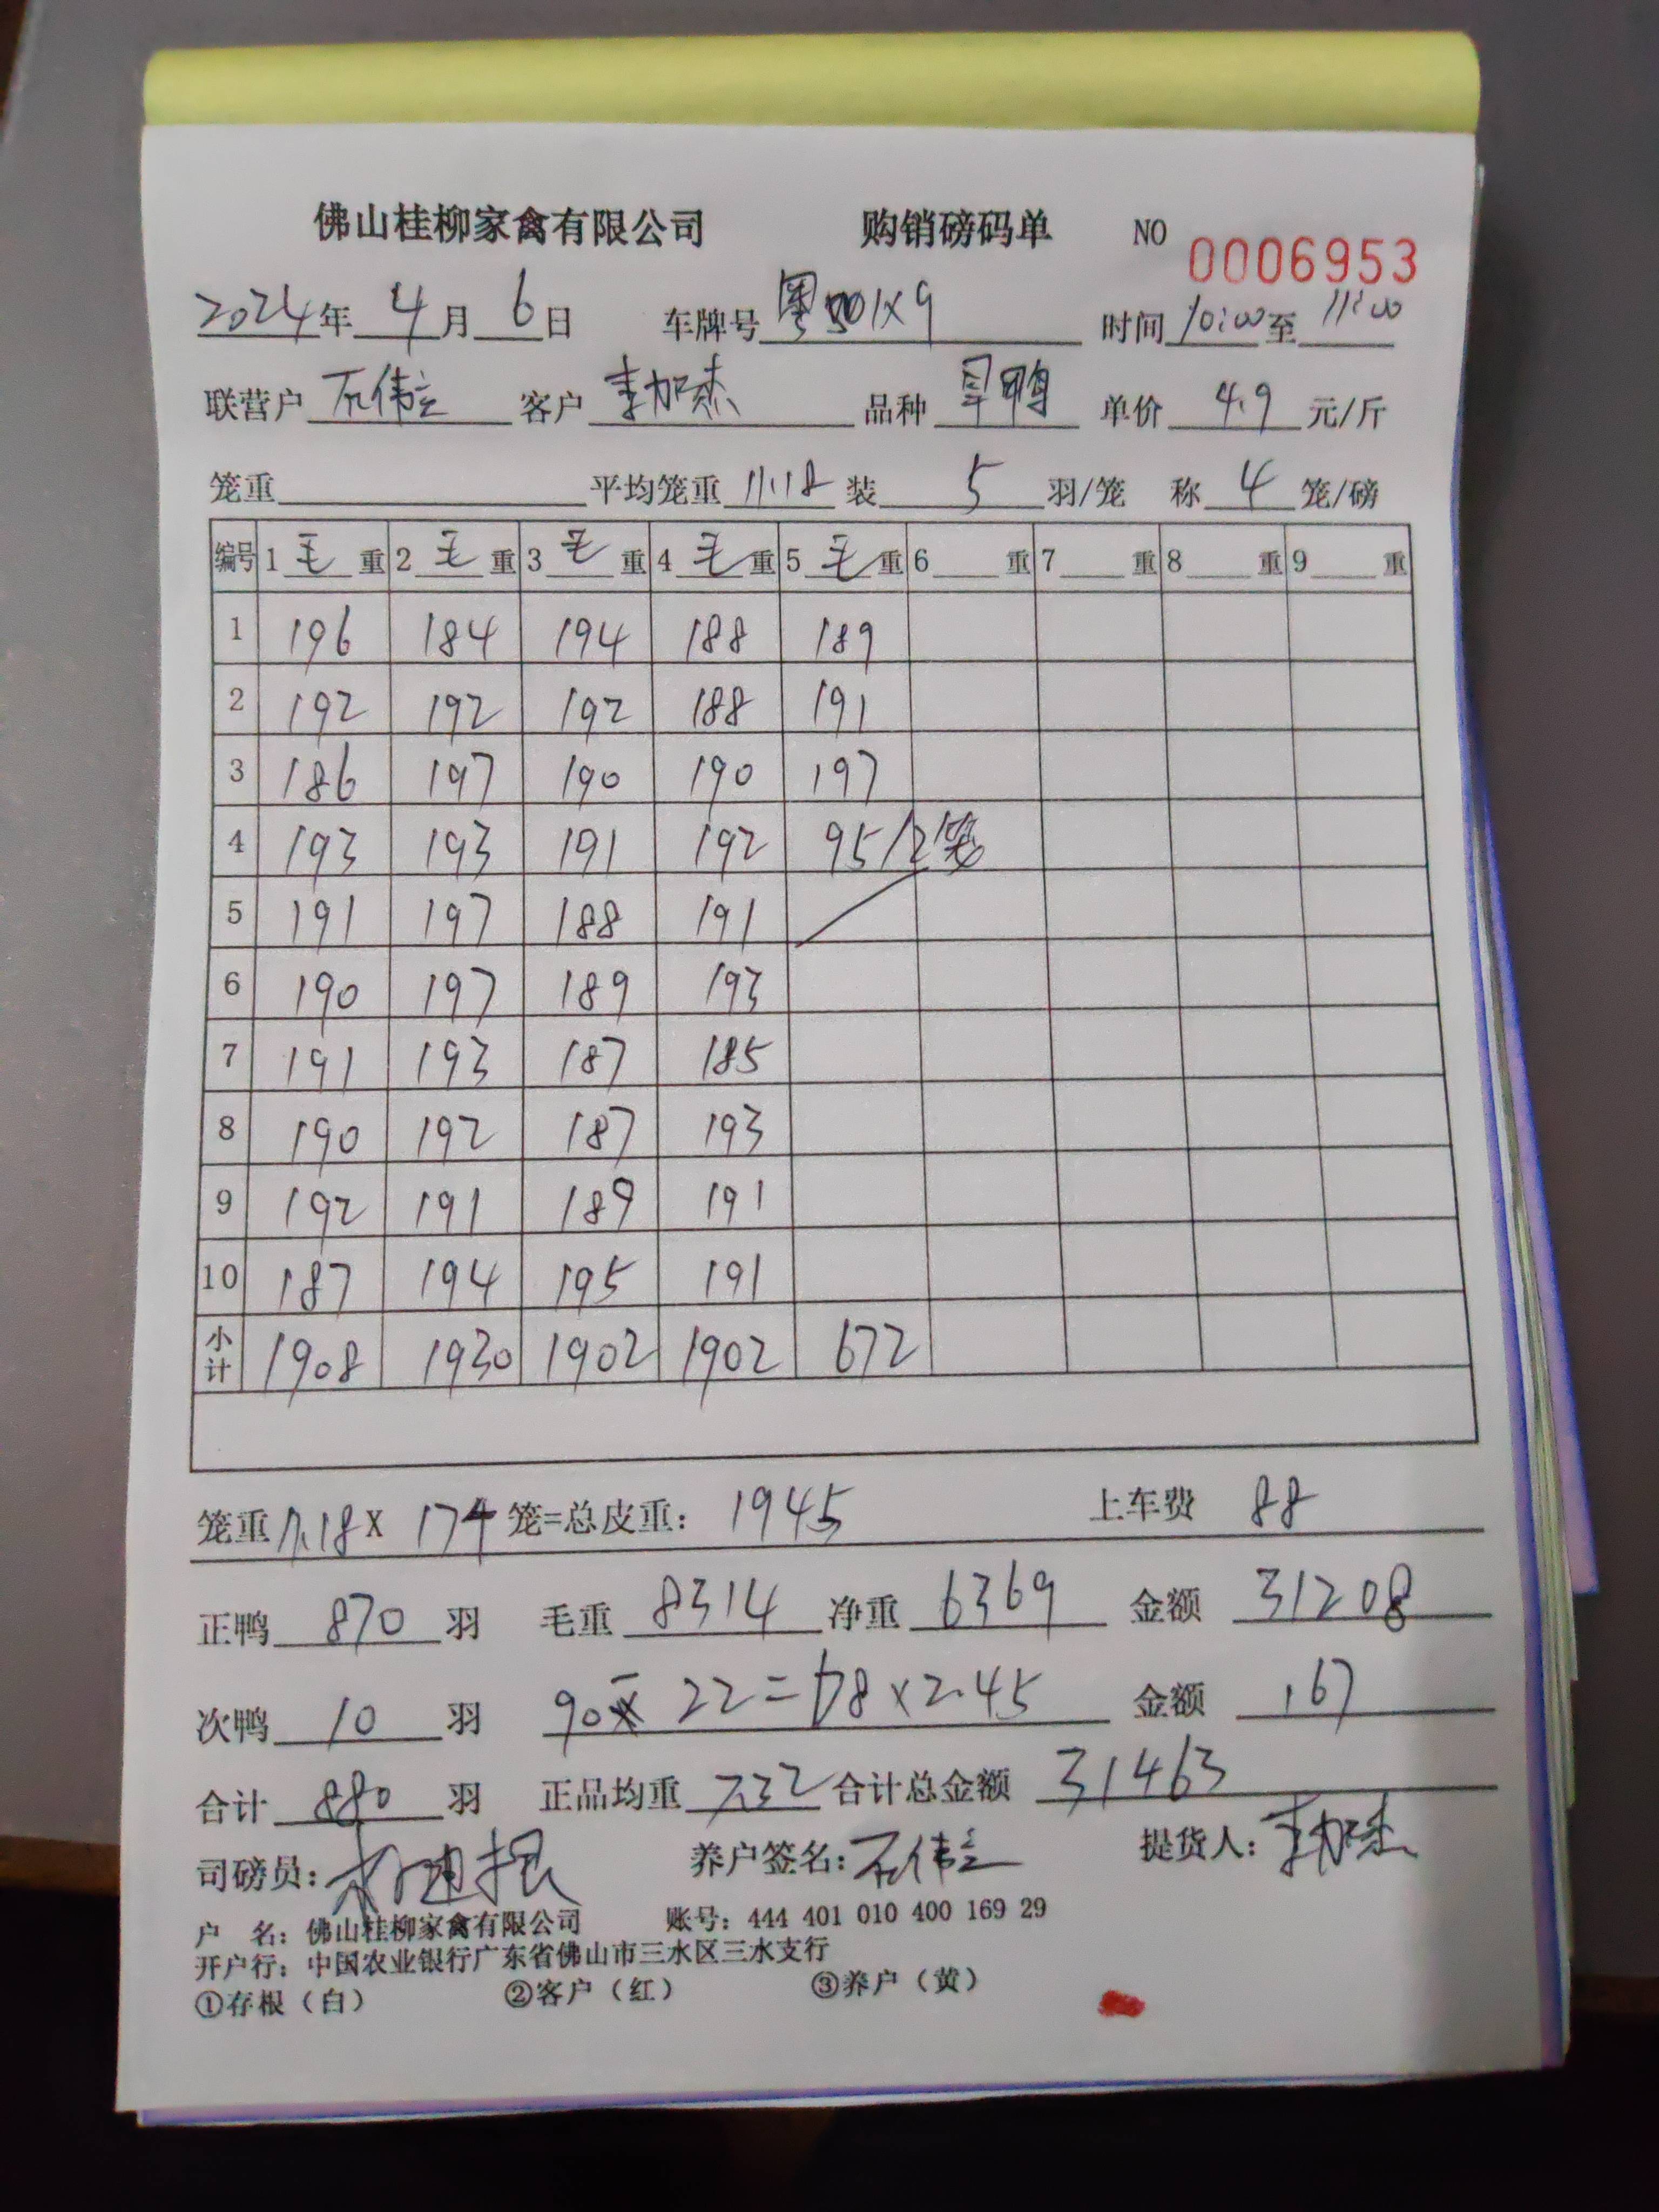 佛山桂柳家禽有限公司 购销磅码单 NO 0006953
2024年 4月 6日 车牌号 粤 01X9 时间 10:00 至 11:00
联营户 石伟立 客户 李加杰 品种 旱鸭 单价 4.9 元/斤
笼重 平均笼重 11.18 装 5 羽/笼 称 4 笼/磅
编号 1 毛 重 2 毛 重 3 毛 重 4 毛 重 5 毛 重 6 重 7 重 8 重 9 重
1 196 184 194 188 189
2 192 192 192 188 191
3 186 197 190 190 197
4 193 193 191 192 95/2笼
5 191 197 188 191
6 190 197 189 193
7 191 193 187 185
8 190 192 187 193
9 192 191 189 191
10 187 194 195 191
小计 1908 1930 1902 1902 672
笼重 11.18 X 174 笼=总皮重: 1945 上车费 88
正鸭 870 羽 毛重 8314 净重 6369 金额 31208
次鸭 10 羽 90 22=68×2.45 金额 167
合计 880 羽 正品均重 7.32 合计总金额 31463
司磅员: 养户签名: 石伟立 提货人: 李加杰
户 名: 佛山桂柳家禽有限公司 账号: 444 401 010 400 169 29
开户行: 中国农业银行广东省佛山市三水区三水支行
①存根（白） ②客户（红） ③养户（黄）